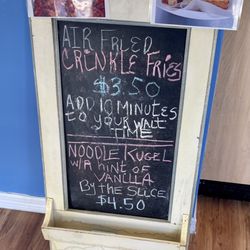 AIR FRIED
CRINKLE FRIES
$3.50
ADD 10 MINUTES
TO YOUR WAIT
TIME
NOODLE KUGEL
W/A HINT OF
VANILLA
BY THE SLICE
$4.50